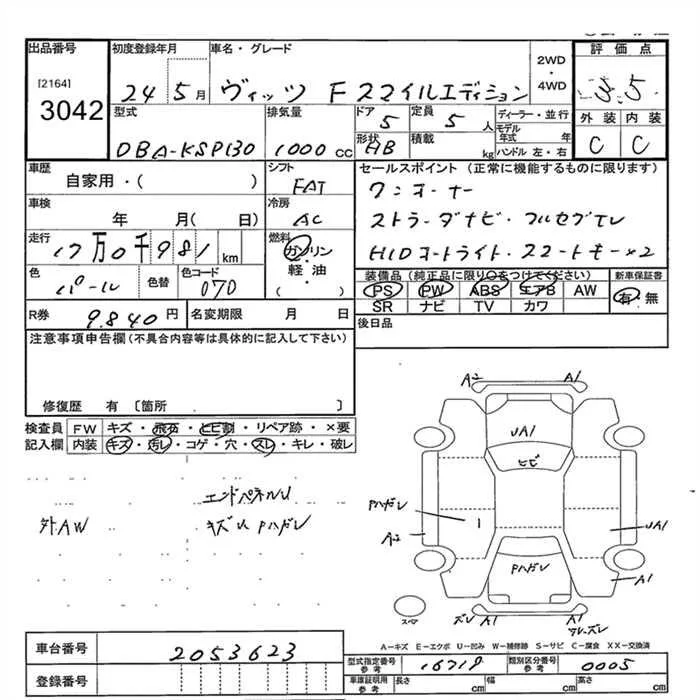 出品番号
[2164]
3042
初度登録年月
24 5月
車名・グレード
ヴィッツ Fスマイルエディション
2WD・4WD
評価点
3.5
外装 内装
C C
型式
DBA-KSP130
排気量
1000 CC
ドア
5
定員
5人
ディーラー・並行
形状
HB
積載
kg
モデル年式 年
ハンドル 左・右
車歴
自家用・( )
シフト
FAT
セールスポイント (正常に機能するものに限ります)
ワンオーナー
ストラーダナビ・フルセグTV
HIDオートライト・スマートキー×2
車検
年 月( 日)
冷房
AC
走行
万0千981km
燃料
ガソリン
軽・油
( )
色
パール
色替
色コード
070
装備品 (純正品に限り○をつけてください)
PS PW ABS エアB AW
SR ナビ TV カワ
新車保証書
有・無
R券
9,840円
名変期限 月 日
後日品
注意事項申告欄 (不具合内容等は具体的に記入して下さい)
修復歴 有 〔箇所 〕
検査員記入欄
FW キズ・飛石・ヒビ割・リペア跡・×要
内装 キズ・汚レ・コゲ・穴・スレ・キレ・破レ
エンドパネルU
外AW
キズU Pハガレ
A2 A1
UA1
ヒビ
Pハガレ
1
A2
UA1
Pハガレ
A1
スマ
ズレ U1 A1
A-キズ E-エクボ U-凹み W-補修跡 S-サビ C-腐食 XX-交換済
車台番号
2053623
登録番号
型式指定番号 参考
16718
類別区分番号 参考
0005
車庫証明用 参考
長さ cm 幅 cm 高さ cm